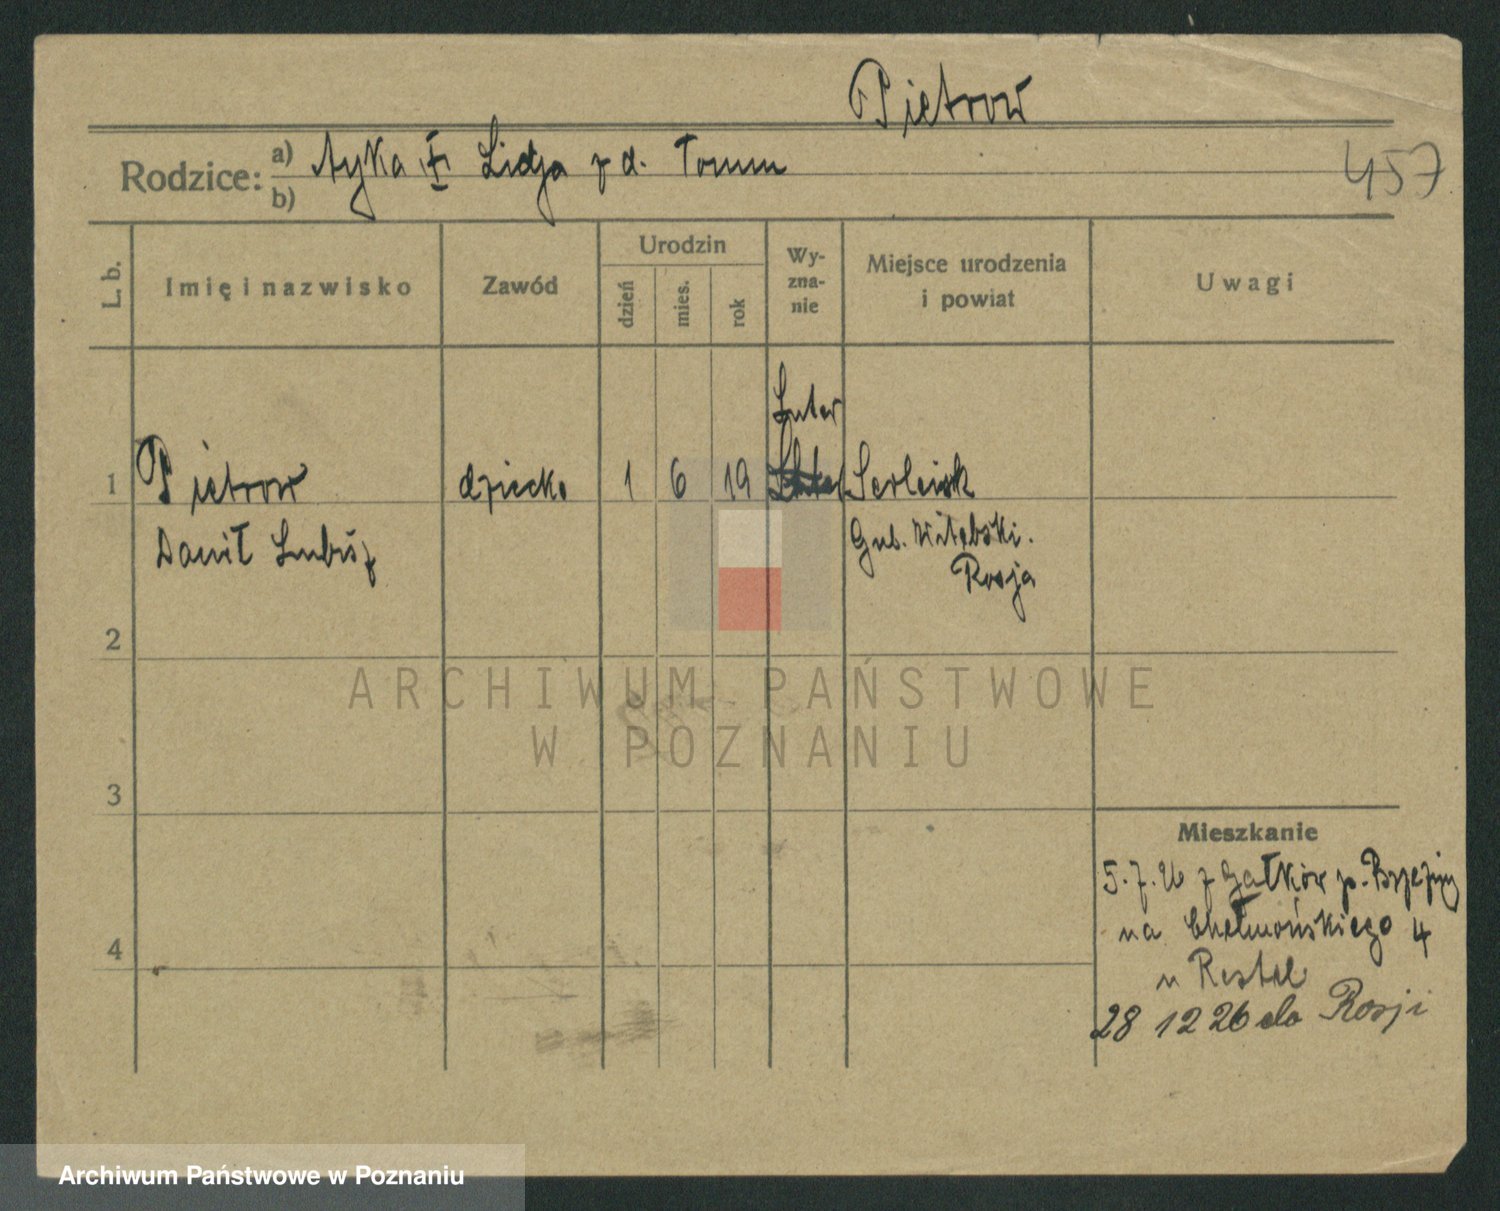 Pietrow
457
Rodzice: a) Ayka Lidja z d. Tomm
b)
L. b. Imię i nazwisko Zawód Urodzin dzień mies. rok Wyznanie Miejsce urodzenia i powiat Uwagi
Luter
1 Pietrow dziecko 1 6 19
Danił
Gub. Witebski.
Rosja
2
3
4
Mieszkanie
5.7.26 z Gałków p. Brzeziny
na Chełmońskiego 4
u Restel
28 12 26 do Rosji
ARCHIWUM PAŃSTWOWE
W POZNANIU
Archiwum Państwowe w Poznaniu